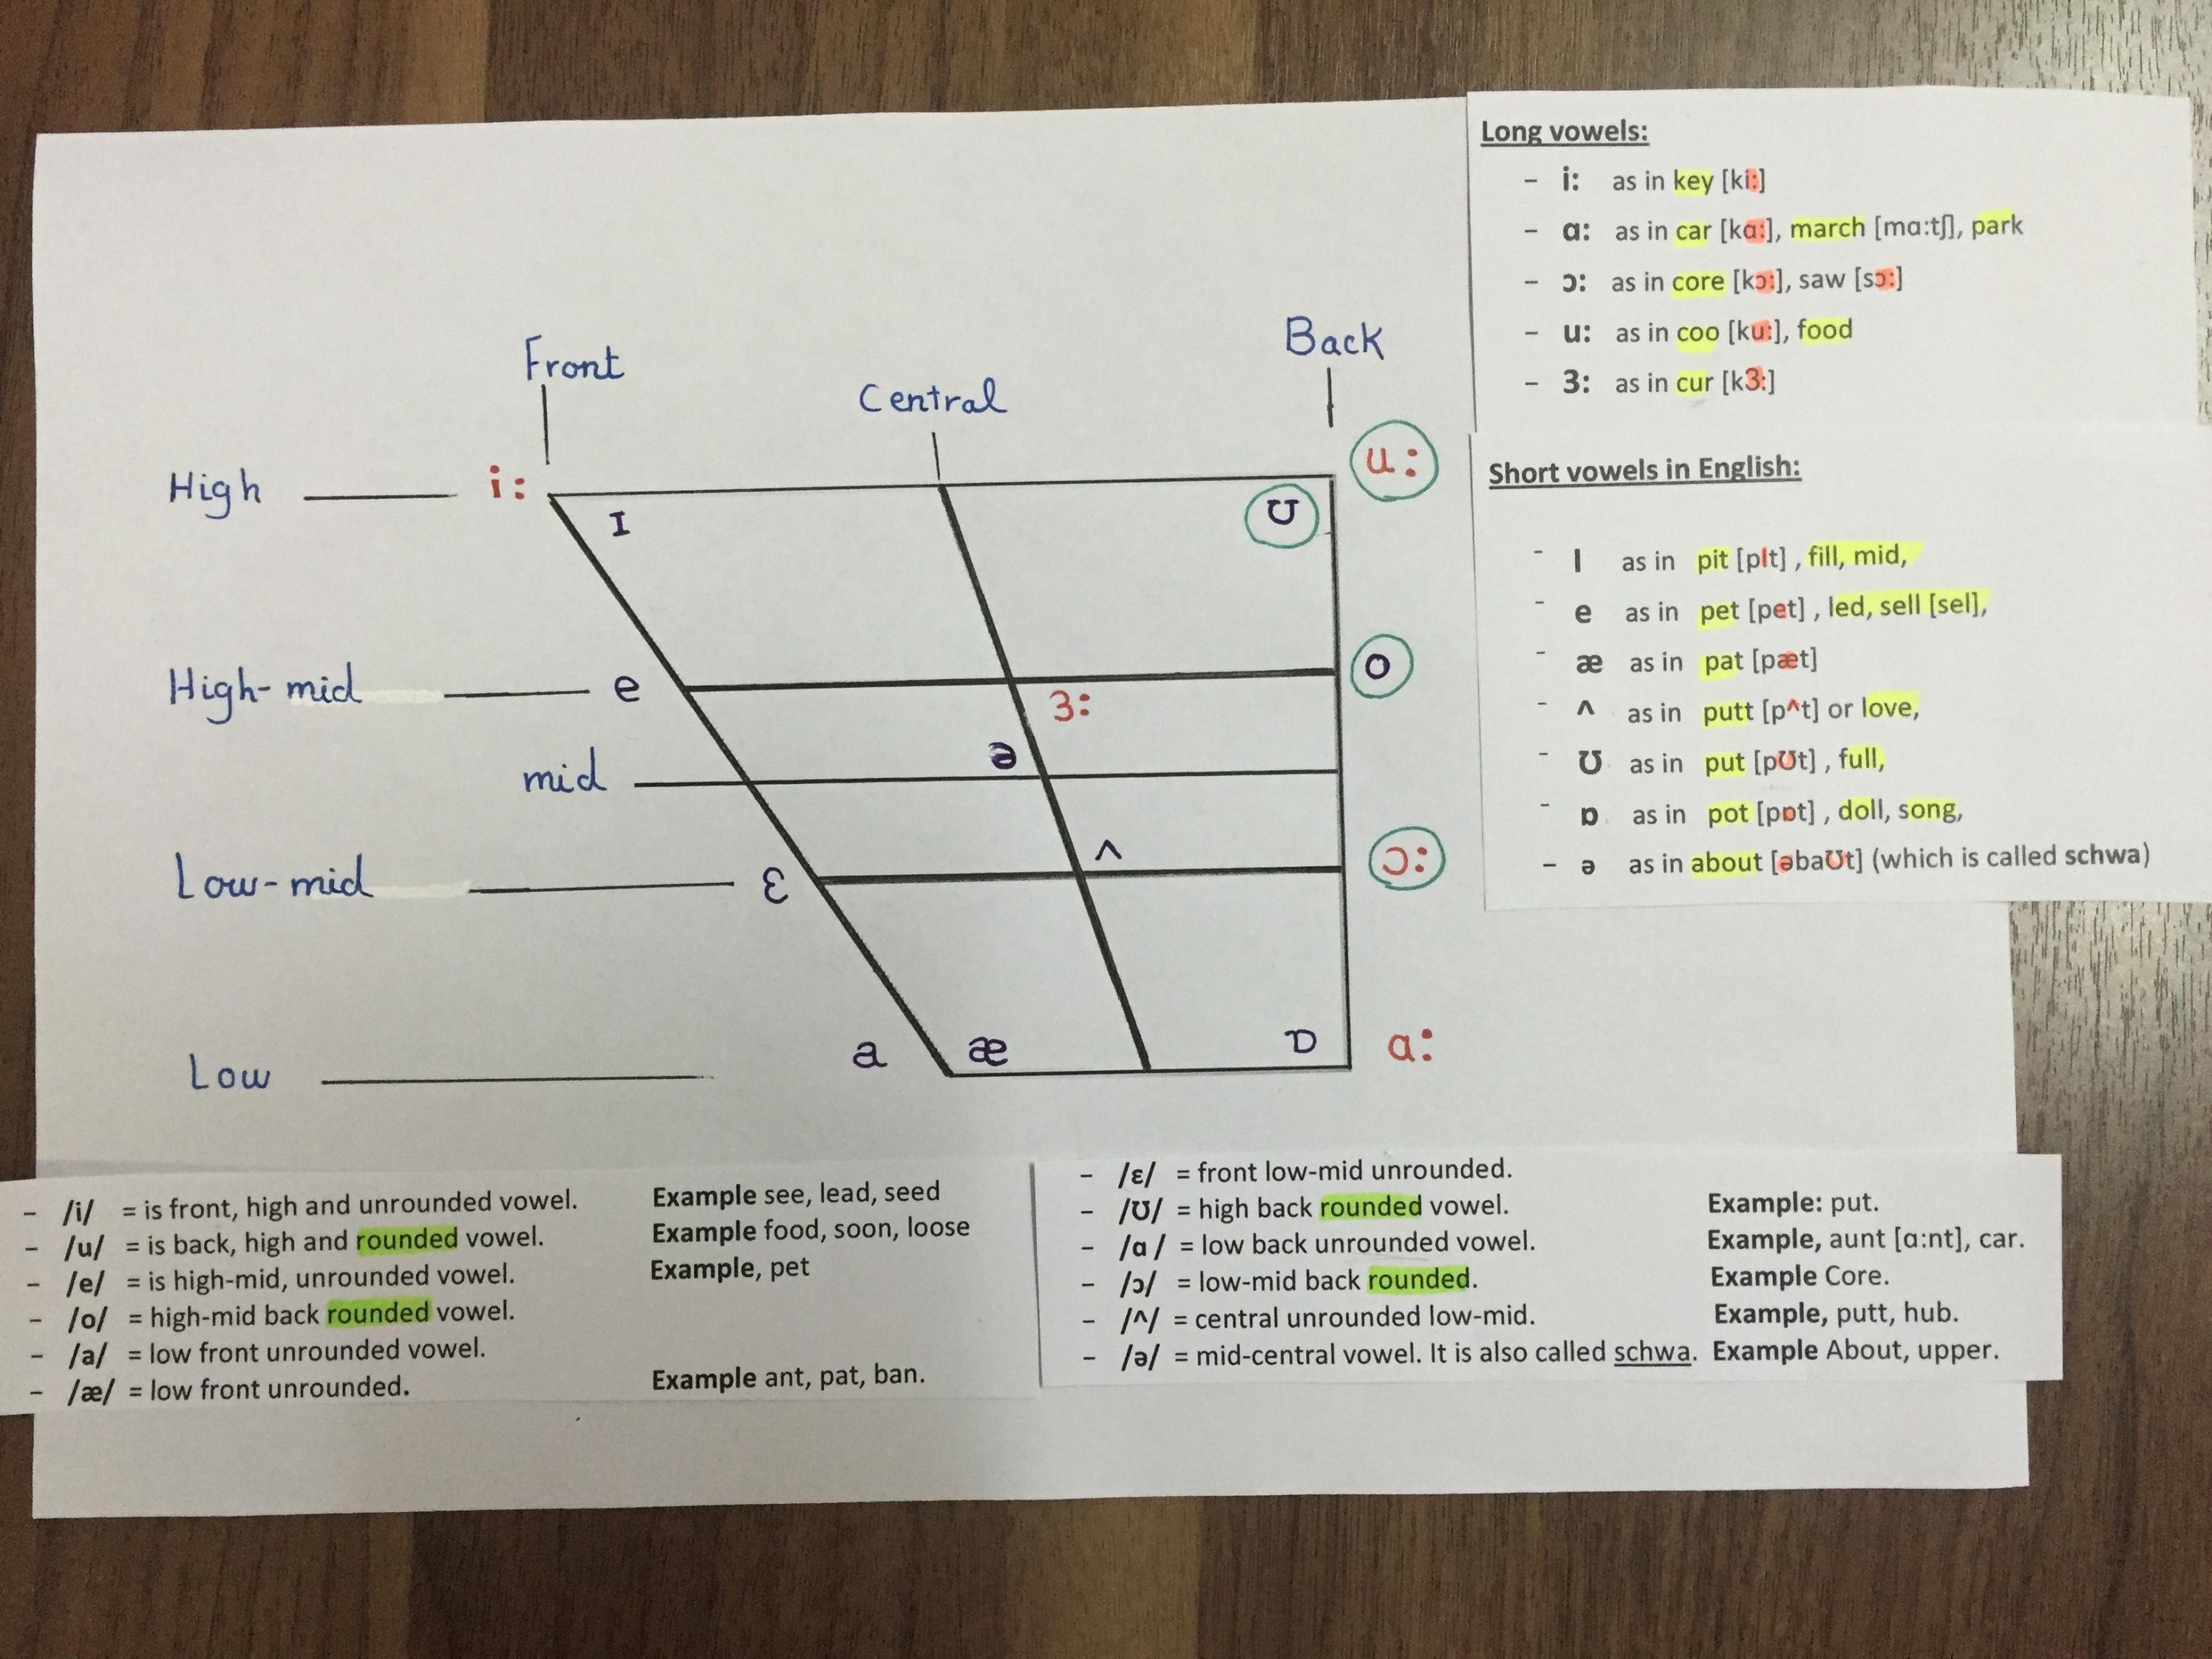 Long vowels:
- i: as in key [ki:]
- ɑ: as in car [kɑ:], march [mɑ:tʃ], park
- ɔ: as in core [kɔ:], saw [sɔ:]
- u: as in coo [ku:], food
- 3: as in cur [k3:]
Short vowels in English:
- I as in pit [pIt] , fill, mid,
- e as in pet [pet] , led, sell [sel],
- æ as in pat [pæt]
- ^ as in putt [p^t] or love,
- Ʊ as in put [pƱt] , full,
- ɒ as in pot [pɒt] , doll, song,
- ə as in about [əbaƱt] (which is called schwa)
Front
Central
Back
High i: u:
I Ʊ
High-mid e o
3:
ə
mid
^
Low-mid ɛ ɔ:
a æ ɒ ɑ:
Low
- /i/ = is front, high and unrounded vowel. Example see, lead, seed
- /u/ = is back, high and rounded vowel. Example food, soon, loose
- /e/ = is high-mid, unrounded vowel. Example, pet
- /o/ = high-mid back rounded vowel.
- /a/ = low front unrounded vowel.
- /æ/ = low front unrounded. Example ant, pat, ban.
- /ɛ/ = front low-mid unrounded.
- /Ʊ/ = high back rounded vowel. Example: put.
- /ɑ / = low back unrounded vowel. Example, aunt [ɑ:nt], car.
- /ɔ/ = low-mid back rounded. Example Core.
- /^/ = central unrounded low-mid. Example, putt, hub.
- /ə/ = mid-central vowel. It is also called schwa. Example About, upper.